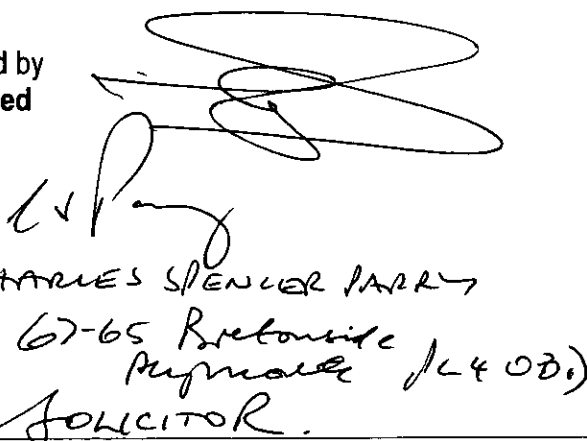 d by
ed
C S Parry
HARLES SPENCER PARRY
67-65 Bretonside
Plymouth PL4 0B
SOLICITOR.